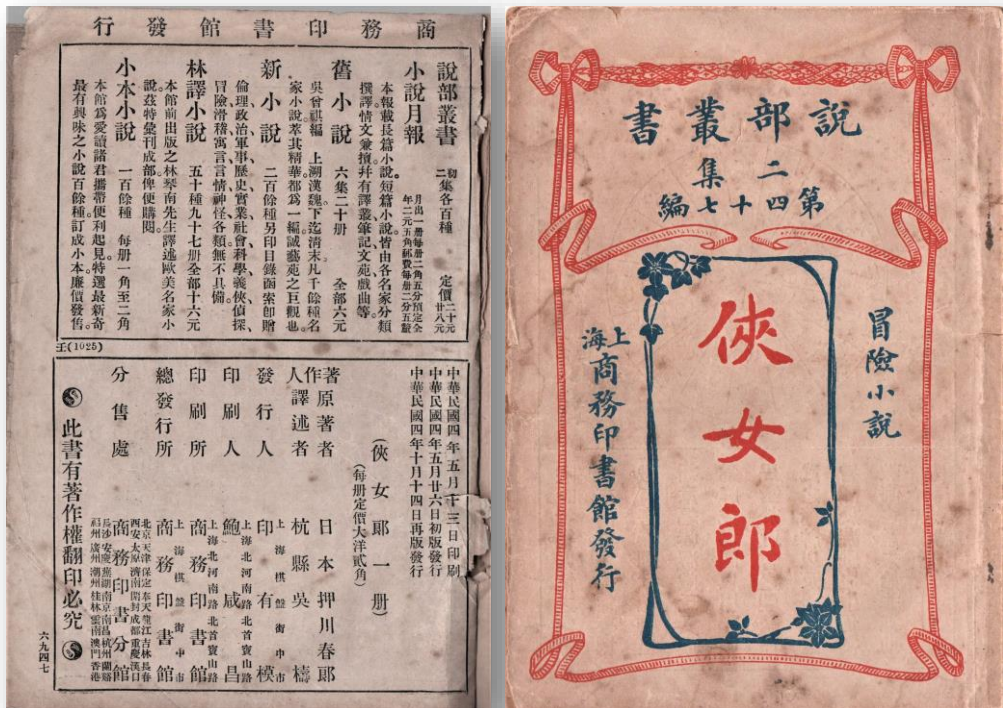 說部叢書
二集
第四十七編
冒險小說
俠女郎
上海商務印書館發行
商務印書館發行
說部叢書 初二集各百種 定價二十元廿八元
小說月報 月出一册每册二角五分預定全年二元五角郵費每册二分五釐
本報載長篇小說短篇小說皆由各名家分類
撰譯情文兼擅幷有譯叢筆記文苑戲曲等
舊小說 六集二十册 全部六元
吳曾祺編 上溯漢魏下迄清末凡千餘種名
家小說萃其精華都爲一編誠藝苑之巨觀也
新小說 二百餘種另印目錄函索卽贈
倫理政治軍事歷史實業社會科學義俠偵探、
冒險滑稽寓言言情神怪各類無不具備
林譯小說 五十種九十七册全部十六元
本館前出版之林琴南先生譯述歐美名家小
說茲特彙刊成部俾便購閱。
小本小說 一百餘種 每册一角至二角
本館爲愛讀諸君攜帶便利起見特選最新奇
最有興味之小說百餘種訂成小本廉價發售。
壬(1025)
中華民國四年五月十三日印刷
中華民國四年五月廿六日初版發行
中華民國四年十月十四日再版發行
(俠女郎一册)
(每册定價大洋貳角)
著作人
原著者 日本押川春郎
譯述者 杭縣吳檮
發行人 上海棋盤街中市 印有模
印刷人 上海北河南路北首寶山路 鮑咸昌
印刷所 上海北河南路北首寶山路 商務印書館
總發行所 上海棋盤街中市 商務印書館
分售處 商務印書分館
北京天津保定奉天龍江吉林長春
西安太原濟南開封成都重慶漢口
長沙安慶蕪湖南京南昌杭州蘭谿
福州廣州潮州桂林雲南澳門香港
此書有著作權翻印必究
六九四七